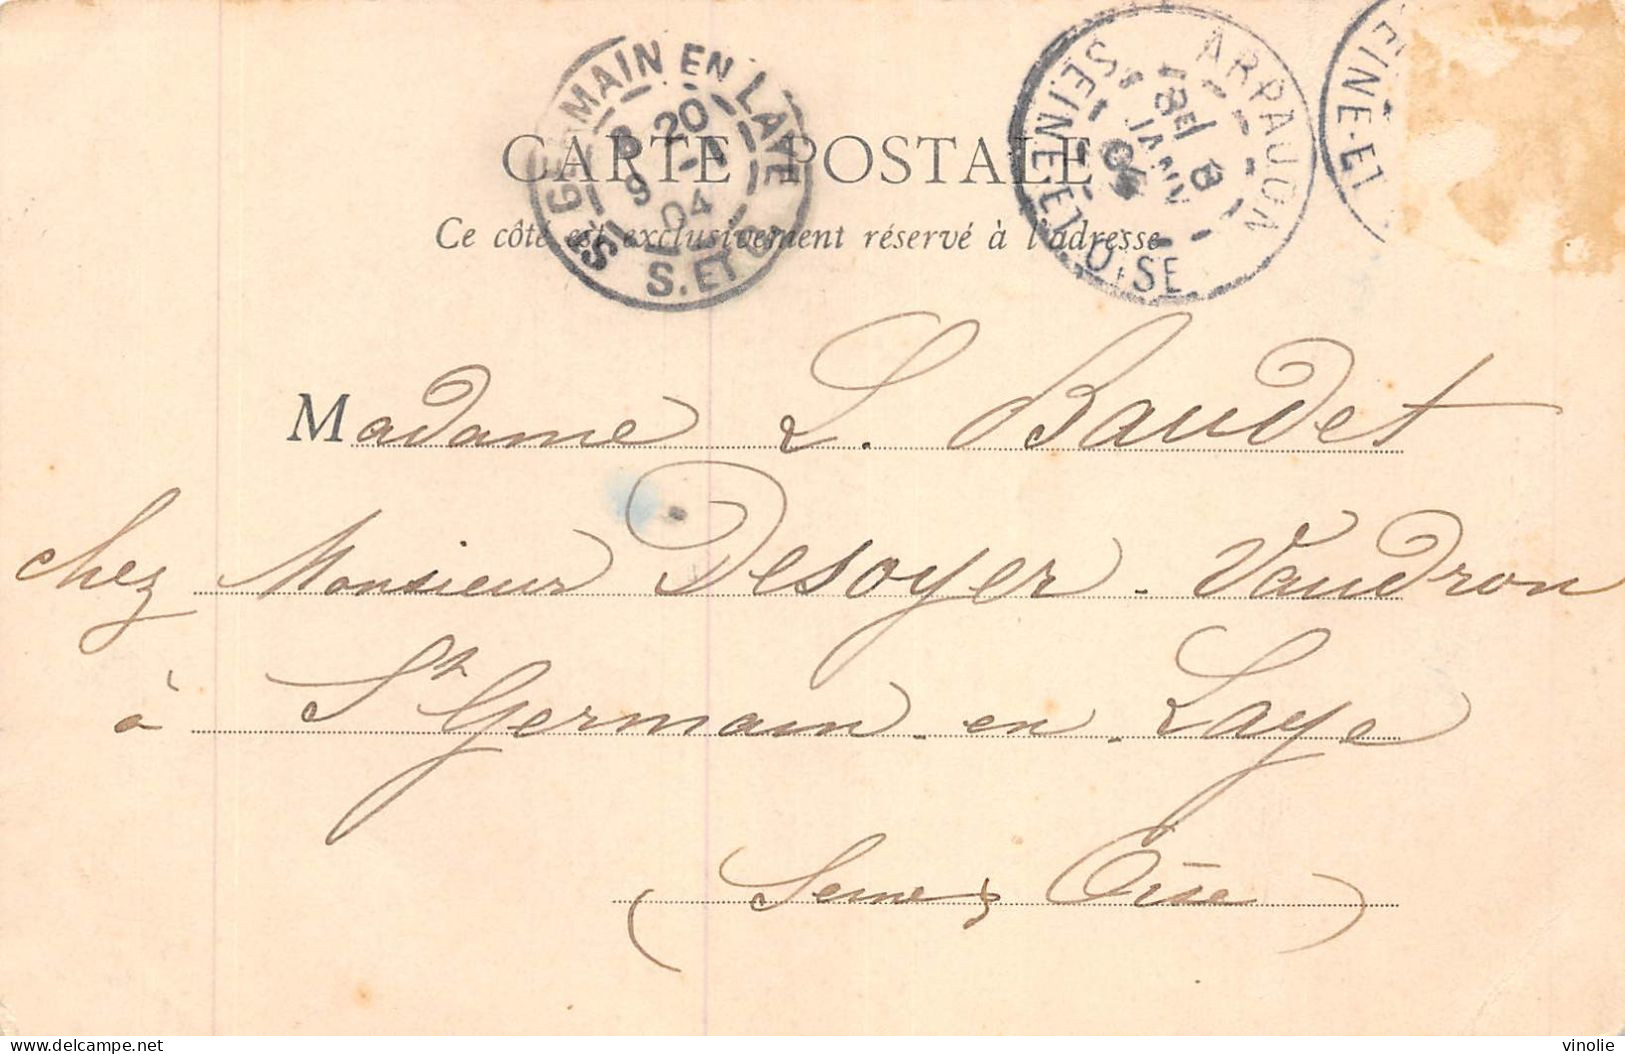 CARTE POSTALE
Ce côté est exclusivement réservé à l'adresse
ST GERMAIN EN LAYE
8 20
9 -1
04
S. ET O.
ARPAJON
8E
8
JANV
04
SEINE ET OISE
EINE-ET
Madame L. Baudet
chez Monsieur Desoyer - Vaudron
à St Germain - en - Laye
(Seine & Oise)
delcampe.net
vinolie